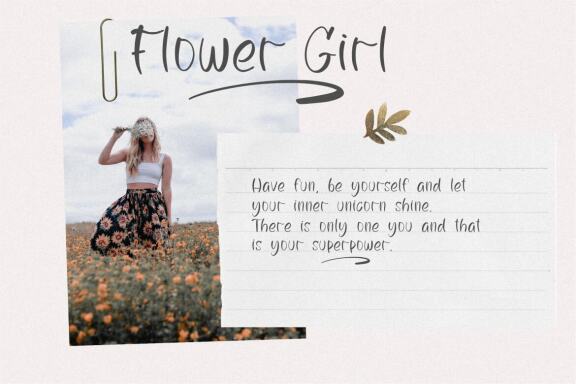 Flower Girl
Have fun, be yourself and let
your inner unicorn shine.
There is only one you and that
is your superpower.